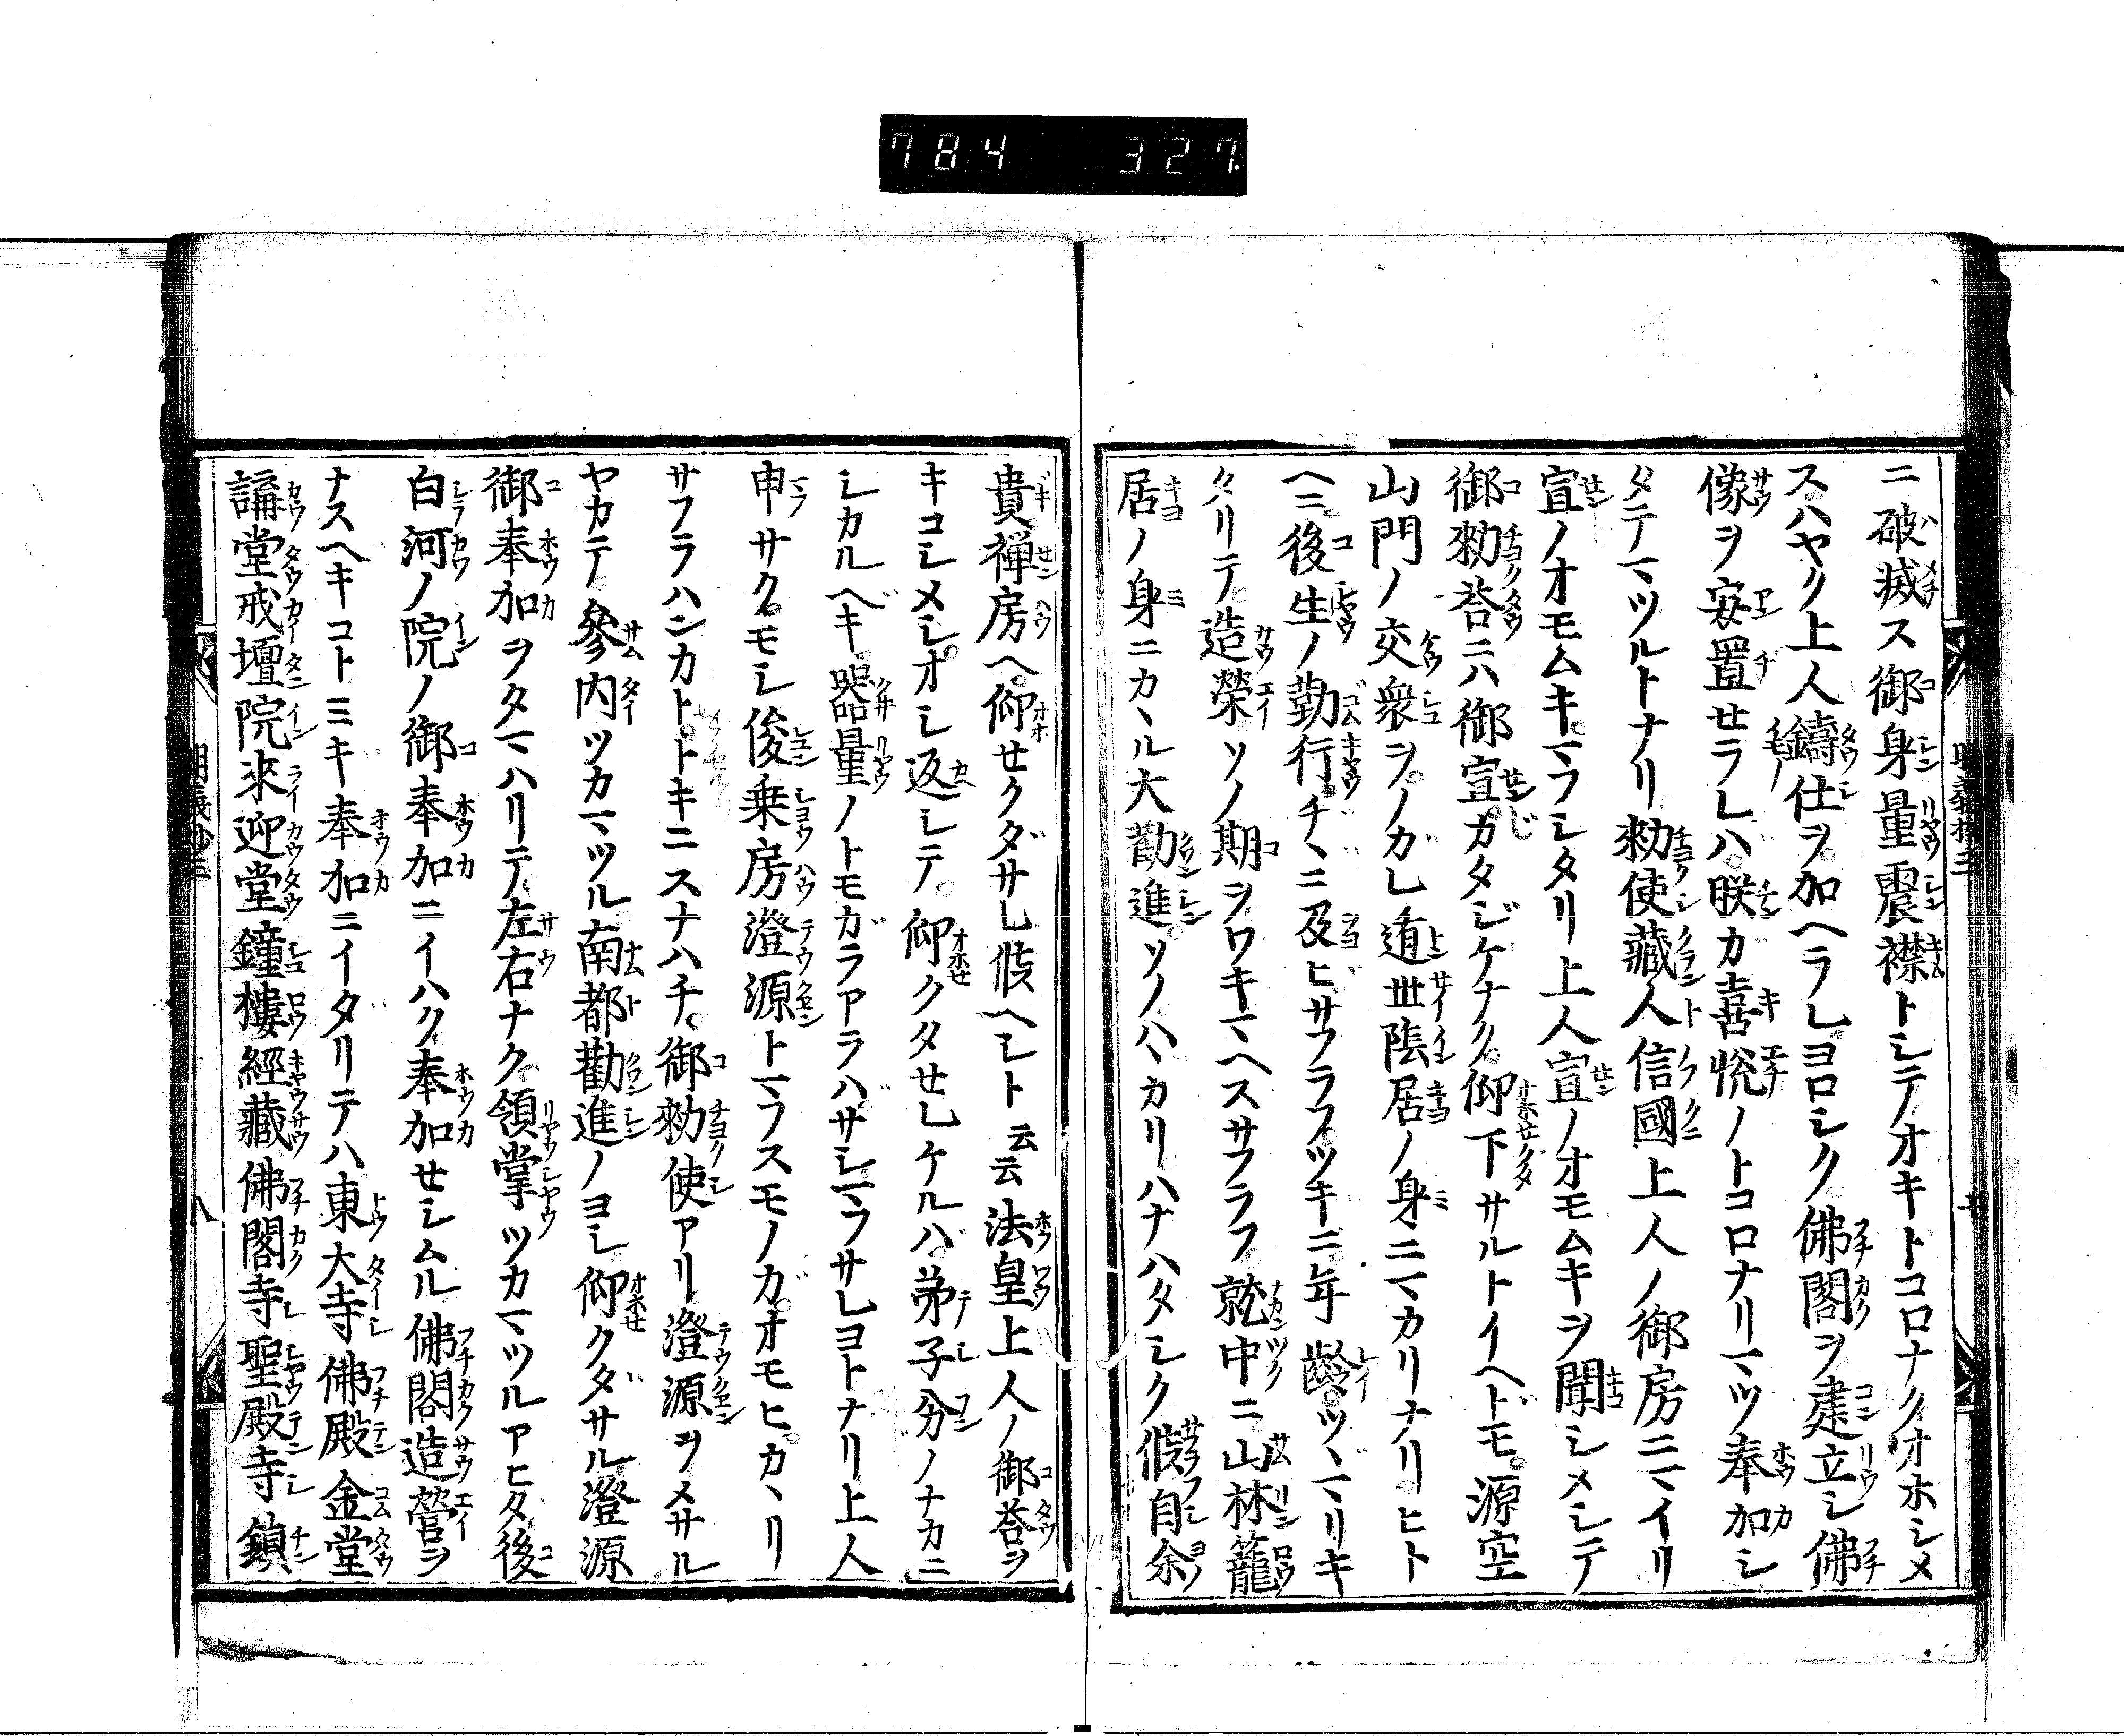 784 327
ニ破滅ス御身量震襟トシテオキトコロナクオホシメ
スハヤク上人鑄仕ヲ加ヘラレヨロシク佛閣ヲ建立シ佛
像ヲ安置セラレハ朕カ喜悦ノトコロナリマツ奉加シ
タテマツルトナリ勅使藏人信國上人ノ御房ニマイリ
宣ノオモムキマフシタリ上人宣ノオモムキヲ聞シメシテ
御勅荅ニハ御宣カタジケナク仰下サルトイヘドモ源空
山門ノ交衆ヲノガレ遁世隂居ノ身ニマカリナリヒト
ヘニ後生ノ勤行チヽニ及ビサフラフツギニ年齡ツヾマリキ
タリテ造榮ソノ期ヲワキマヘスサフラフ就中ニ山林籠
居ノ身ニカヽル大勸進ソノハヽカリハナハタシク候自余
貴禅房ヘ仰セクダサレ候ヘシト云云法皇上人ノ御荅ヲ
キコシメシオシ返シテ仰クタセレケルハ弟子分ノナカニ
シカルベキ器量ノトモガラアラハザシマフサレヨトナリ上人
申サクモシ俊乗房澄源トマフスモノガオモヒカヽリ
サフラハンカトトキニスナハチ御勅使アリ澄源ヲメサル
ヤカテ參内ツカマツル南都勸進ノヨシ仰クダサル澄源
御奉加ヲタマハリテ左右ナク領掌ツカマツルアヒタ後
白河ノ院ノ御奉加ニイハク奉加セシムル佛閣造營ヲ
ナスヘキコトミキ奉加ニイタリテハ東大寺佛殿金堂
講堂戒壇院來迎堂鐘樓經藏佛閣寺聖殿寺鎮
八